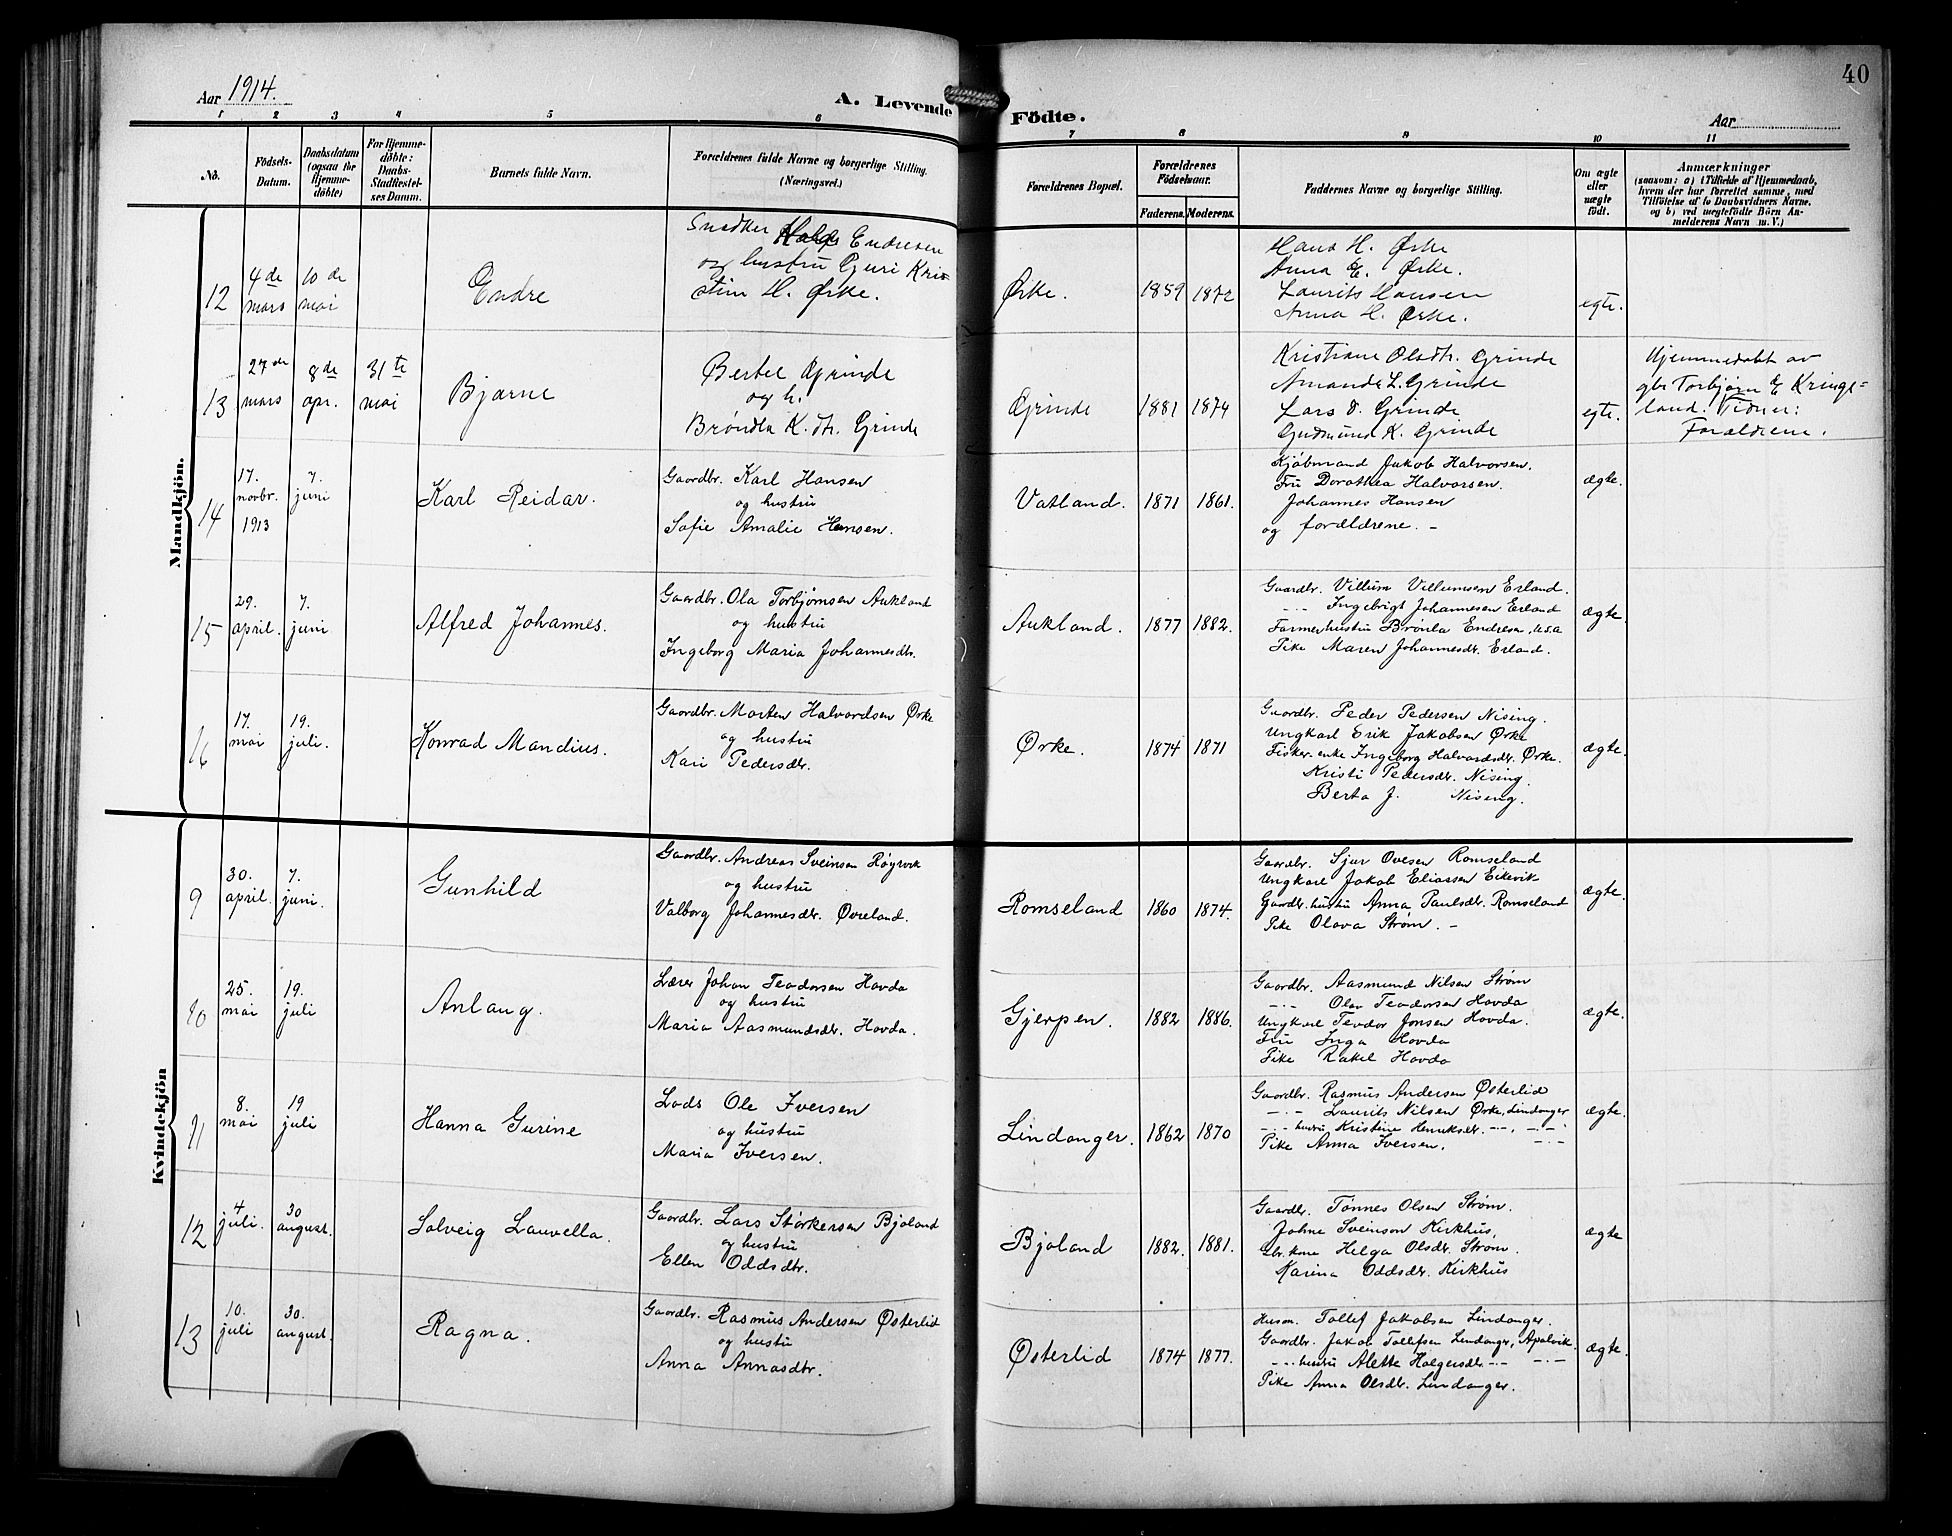 40
Aar 1914.
A. Levende Födte.
Aar
1 2 3 4 5 6 7 8 9 10 11
No.
Födsels-Datum.
Daabsdatum (ogsaa for Hjemme-döbte)
For Hjemme-döbte: Daabs-Stadfestel-ses Damm.
Barnets fulde Navn.
Forældrenes fulde Navne og borgerlige Stilling. (Næringsvei.)
Forældrenes Bopæl.
Forældrenes Födselsaar.
Faderens. Moderens.
Faddernes Navne og borgerlige Stilling.
Om ægte eller uægte födt.
Anmærkninger
(saasom: a) i Tilfælde af Hjemmedaab,
hvem der har forrettet samme, med
Tilföielse af to Daabsvidners Navne,
og b) ved uægtefödte Börn An-
melderens Navn m. V.)
Mandkjön.
12
4de mars
10de mai
Endre
Snedker Endresen
og hustru Guri Kris-
tine H. Ørke.
Ørke.
1859 1872
Hans H. Ørke
Anna E. Ørke.
Laurits Hansen
Anna H. Ørke.
egte.
13
27de mars
8de apr.
31te mai
Bjarne
Bertel Grinde
og h.
Bröndla K. dtr. Grinde
Grinde
1881 1874
Kristiane Olsdtr. Grinde
Amanda L. Grinde
Lars O. Grinde
Gudmund K. Grinde
egte.
Hjemmedøbt av
gbr Torbjørn E Kringe-
land. Vidner:
Forældrene.
14
17. novbr. 1913
7. juni
Karl Reidar.
Gaardbr. Karl Hansen
og hustru
Sofie Amalie Hansen.
Vatland.
1871 1861.
Kjøbmand Jakob Halvorsen.
Fru Dorothea Halvorsen.
Johannes Hansen
og forældrene. -
ægte.
15
29. april.
7. juni
Alfred Johannes.
Gaardbr. Ola Torbjørnsen Aukland
og hustru
Ingeborg Maria Johannesdtr.
Aukland.
1877 1882.
Gaardbr. Villum Villumsen Erland.
-.- Ingebrigt Johannesen Erland
Farmerhustru Brønla Endresen, U.S.A
Pike Maren Johannesdr. Erland.
ægte.
16
17. mai
19. juli.
Konrad Mandius.
Gaardbr. Morten Halvordsen Ørke
og hustru
Kari Pedersdtr.
Ørke.
1874 1871
Gaardbr. Peder Pedersen Nising.
Ungkarl Erik Jakobsen Ørke
Fisker-enke Ingeborg Halvordsdtr. Ørke.
Kristi Pedersdtr. Nising.
Berta J. Nising.
ægte.
Kvindekjön
9
30. april.
7. juni.
Gunhild
Gaardbr. Andreas Sveinsen Røyrvik
og hustru
Valborg Johannesdtr. Øveland.
Romseland
1860 1874.
Gaardbr. Sjur Ovesen Romseland
Ungkarl Jakob Eliassen Eikevik
Gaardbr. hustru Anna Paulsdtr. Romseland
Pike Olava Strøm. -
ægte.
10
25. mai
19. juli
Anlaug.
Lærer Johan Teodorsen Hovda
og hustru
Maria Aasmundsdtr. Hovda.
Gjerpen.
1882 1886.
Gaardbr. Aasmund Nilsen Strøm
-.- Olav Teodorsen Hovda
Ungkarl Teodor Jonsen Hovda.
Fru Inga Hovda
Pike Rakel Hovda
ægte.
11
8. mai
19 juli
Hanna Gurine
Lods Ole Iversen
og hustru
Maria Iversen.
Lindanger.
1862 1870
Gaardbr. Rasmus Andersen Østerlid
-.- Laurits Nilsen Ørke, Lindanger
-.- hustru Kristine Henriksdtr. -.-, -.-
Pike Anna Iversen. -.-
ægte.
12
4 juli.
30 august.
Solveig Lauvella.
Gaardbr. Lars Størkersen Bjoland
og hustru
Ellen Oddsdtr.
Bjoland
1882. 1881.
Gaardbr. Tønnes Olsen Strøm.
Johne Sveinson Kirkhus,
Gbr. kone Helga Olsdtr. Strøm.
Karina Oddsdtr. Kirkhus
ægte
13
10. juli
30. august.
Ragna.
Gaardbr. Rasmus Andersen Østerlid
og hustru
Anna Annasdtr.
Østerlid
1874 1877.
Husm. Tollef Jakobsen Lindanger.
Gaardbr. Jakob Tollefsen Lindanger, Apalvik.
-.- hustru Alette Holgersdtr. -.- -.-
Pike Anna Olsdtr. Lindanger.
ægte.